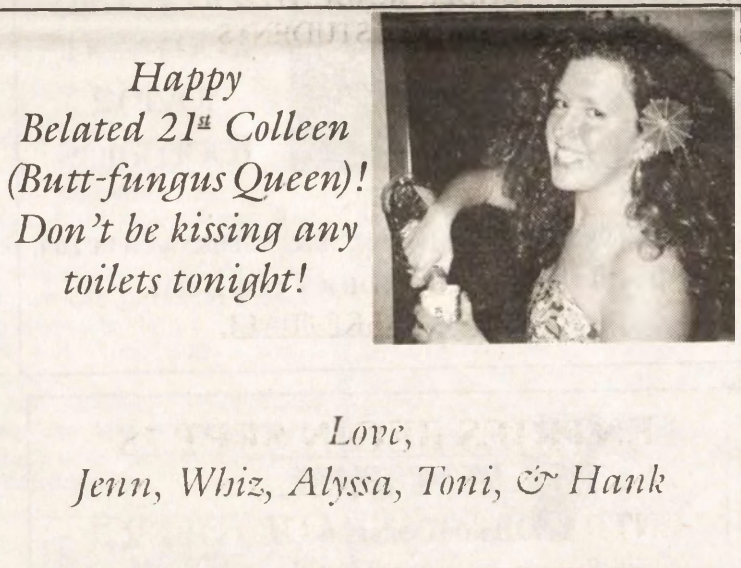 Happy
Belated 21st Colleen
(Butt-fungus Queen)!
Don't be kissing any
toilets tonight!
Love,
Jenn, Whiz, Alyssa, Toni, & Hank